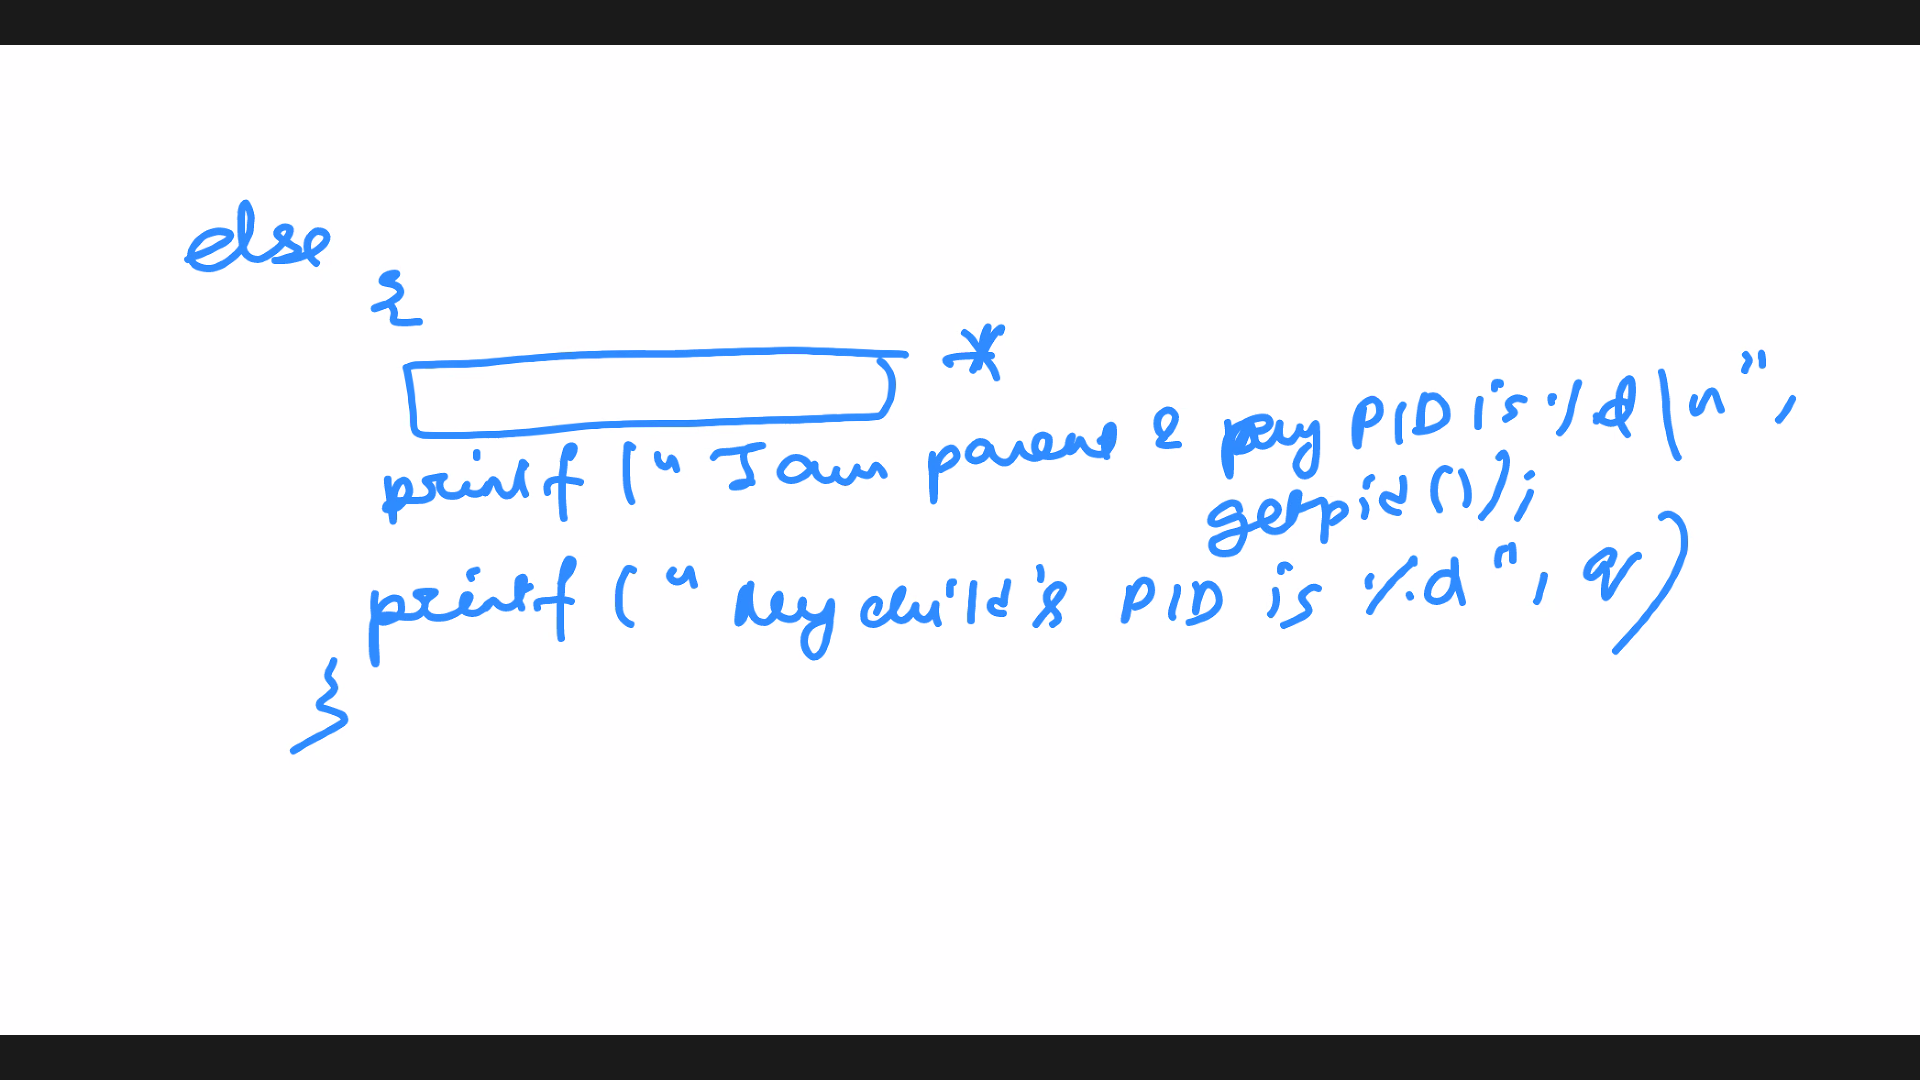 else
{
*
printf ("I am parent & my PID is %d\n",
getpid());
printf ("My child's PID is %d", q)
}